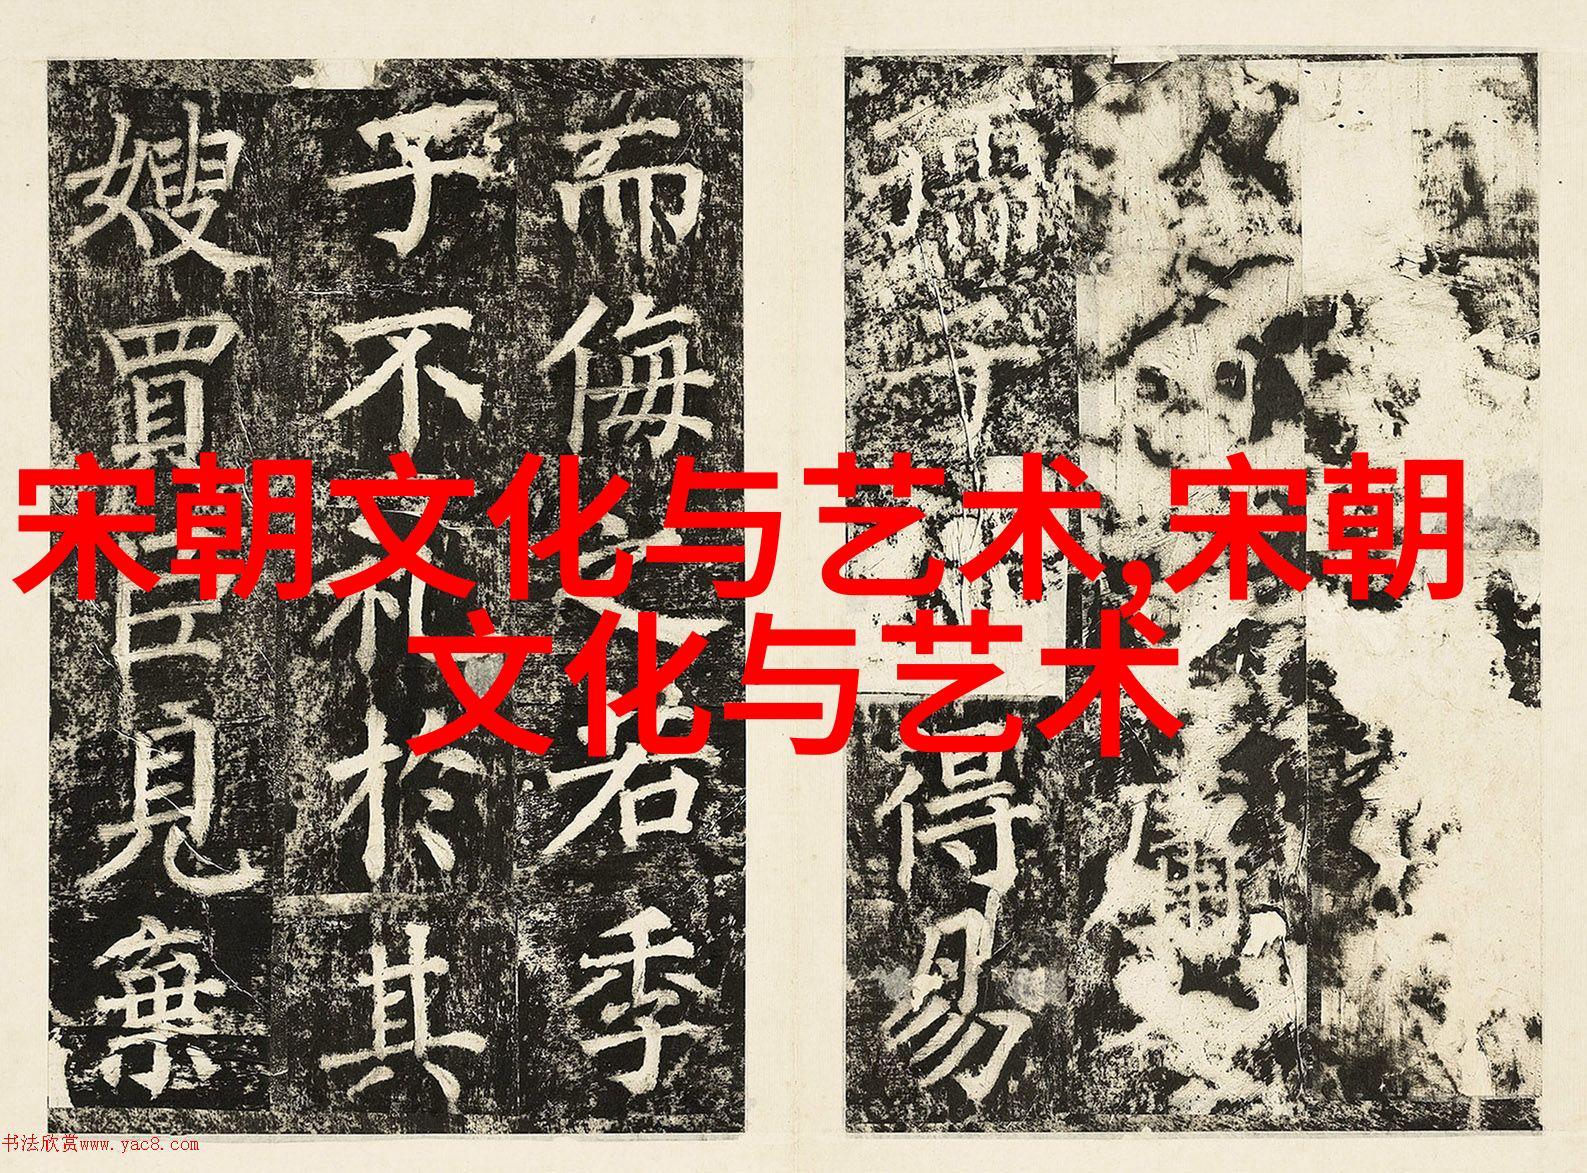 宋朝文化与艺术,宋朝
文化与艺术
得易
而侮之若季
子不礼於其
嫂買臣見棄
书法欣赏www.yac8.com